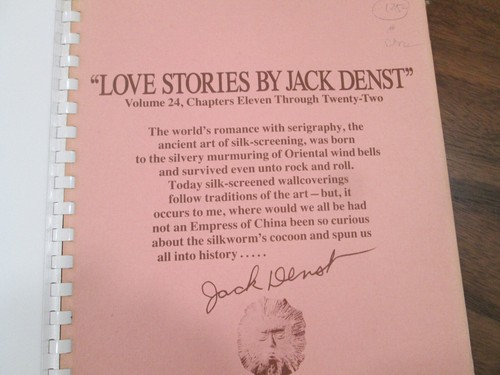 “LOVE STORIES BY JACK DENST”
Volume 24, Chapters Eleven Through Twenty-Two
The world's romance with serigraphy, the
ancient art of silk-screening, was born
to the silvery murmuring of Oriental wind bells
and survived even unto rock and roll.
Today silk-screened wallcoverings
follow traditions of the art—but, it
occurs to me, where would we all be had
not an Empress of China been so curious
about the silkworm's cocoon and spun us
all into history.....
Jack Denst